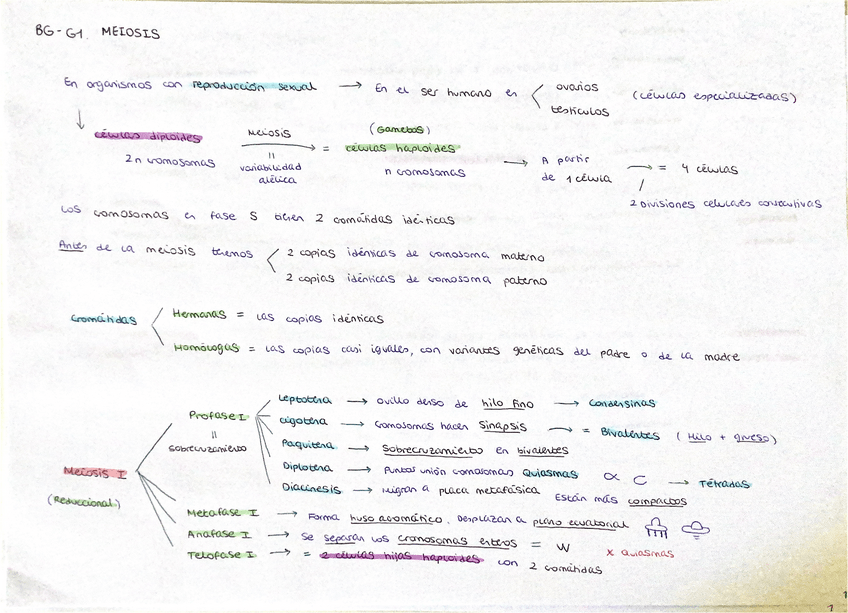 BG-G1. MEIOSIS
En organismos con reproducción sexual → En el ser humano en < ovarios (células especializadas)
testículos
↓ células diploides Meiosis → = (Gametos) células haploides → A partir de 1 célula → = 4 células
2n cromosomas = variabilidad alélica n cromosomas 2 Divisiones celulares consecutivas
Los cromosomas en fase S tienen 2 cromátidas idénticas
Antes de la meiosis tenemos < 2 copias idénticas de cromosoma materno
2 copias idénticas de cromosoma paterno
Cromátidas < Hermanas = Las copias idénticas
Homólogas = Las copias casi iguales, con variantes genéticas del padre o de la madre
Meiosis I
(Reduccional)
Profase I
=
Sobrecruzamiento
Leptotena → ovillo denso de hilo fino → Condensinas
Cigotena → Cromosomas hacen Sinapsis → = Bivalentes (Hilo + grueso)
Paquitena → Sobrecruzamiento en bivalentes
Diplotena → Puntos unión cromosomas Quiasmas → Tétradas
Diacinesis → Migran a placa metafásica Están más compactos
Metafase I → Forma huso acromático. Desplazan a plano ecuatorial
Anafase I → Se separan los cromosomas enteros = W x quiasmas
Telofase I → = 2 células hijas haploides con 2 cromátidas
1